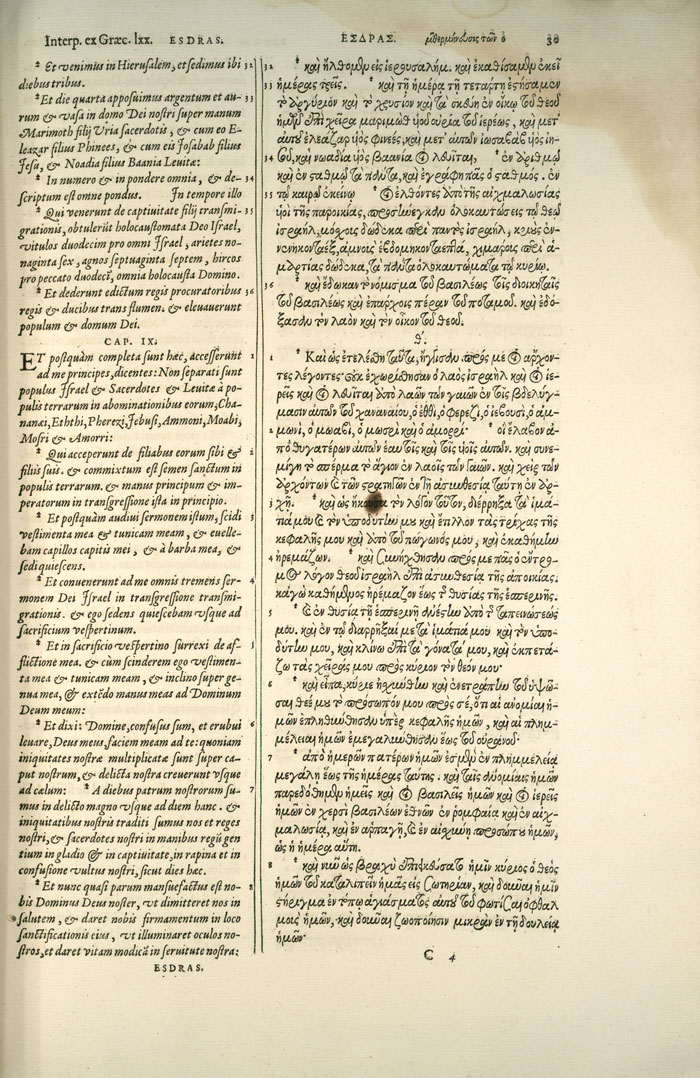 Interp. ex Græc. lxx. ESDRAS.
* Et venimus in Hierusalem, et sedimus ibi 32
diebus tribus.
* Et die quarta apposuimus argentum et au- 33
rum & vasa in domo Dei nostri super manum
Marimoth filij Vria sacerdotis, & cum eo E-
leazar filius Phinees, & cum eis Josabab filius
Jesu, & Noadia filius Baania Leuitæ:
* In numero & in pondere omnia, & de- 34
scriptum est omne pondus. In tempore illo
* Qui venerunt de captiuitate filij transmi- 35
grationis, obtulerūt holocaustomata Deo Israel,
vitulos duodecim pro omni Israel, arietes no-
naginta sex, agnos septuaginta septem, hircos
pro peccato duodecī, omnia holocausta Domino.
* Et dederunt edictum regis procuratoribus 36
regis & ducibus trans flumen. & eleuauerunt
populum & domum Dei.
CAP. IX.
ET postquàm completa sunt hæc, accesserūnt 1
ad me principes, dicentes: Non separati sunt
populus Israel & Sacerdotes & Leuitæ à po-
pulis terrarum in abominationibus eorum, Cha-
nanai, Eththi, Pherezi, Jebusi, Ammoni, Moabi,
Mosri & Amorri:
* Quia acceperunt de filiabus eorum sibi & 2
filiis suis. & commixtum est semen sanctum in
populis terrarum. & manus principum & im-
peratorum in transgressione ista in principio.
* Et postquàm audiui sermonem istum, scidi 3
vestimenta mea & tunicam meam, & euelle-
bam capillos capitis mei, & à barba mea, &
sedi quiescens.
* Et conuenerunt ad me omnis tremens ser- 4
monem Dei Israel in transgressione transmi-
grationis. & ego sedens quiescebam vsque ad
sacrificium vespertinum.
* Et in sacrificio vespertino surrexi de af- 5
flictione mea. & cùm scinderem ego vestimen-
ta mea & tunicam meam, & inclino super ge-
nua mea, & extēdo manus meas ad Dominum
Deum meum:
* Et dixi: Domine, confusus sum, et erubui 6
leuare, Deus meus, faciem meam ad te: quoniam
iniquitates nostræ multiplicatæ sunt super ca-
put nostrum, & delicta nostra creuerunt vsque
ad cælum: * A diebus patrum nostrorum su- 7
mus in delicto magno vsque ad diem hanc. & in
iniquitatibus nostris traditi sumus nos et reges
nostri, & sacerdotes nostri in manibus regū gen
tium in gladio & in captiuitate, in rapina et in
confusione vultus nostri, sicut dies hæc.
* Et nunc quasi parum mansuefactus est no- 8
bis Dominus Deus noster, vt dimitteret nos in
salutem, & daret nobis firmamentum in loco
sanctificationis eius, vt illuminaret oculos no-
stros, et daret vitam modicā in seruitute nostra:
ESDRAS.
ΕΣΔΡΑΣ. μεθερμήνευσις τῶν ὁ 30
32 * καὶ ἤλθομεν εἰς ἱερουσαλήμ. καὶ ἐκαθίσαμεν ἐκεῖ
33 ἡμέρας τρεῖς. * καὶ τῇ ἡμέρᾳ τῇ τετάρτῃ ἐστήσαμεν
τὸ ἀργύριον καὶ τὸ χρυσίον καὶ τὰ σκεύη ἐν οἴκῳ τοῦ θεοῦ
ἡμῶν ἐπὶ χεῖρα μαριμὼθ υἱοῦ οὐρία τοῦ ἱερέως, καὶ μετ
αὐτοῦ ἐλεάζαρ υἱὸς φινεές, καὶ μετ' αὐτῶν ἰωσαβὰβ υἱὸς ἰη-
34 σοῦ, καὶ νωαδία υἱὸς βαανία οἱ λευῖται, * ἐν ἀριθμῷ
καὶ ἐν σταθμῷ τὰ πάντα, καὶ ἐγράφη πᾶς ὁ σταθμός. ἐν
35 τῷ καιρῷ ἐκείνῳ * οἱ ἐλθόντες ἀπὸ τῆς αἰχμαλωσίας
υἱοὶ τῆς παροικίας, προσήνεγκαν ὁλοκαυτώσεις τῷ θεῷ
ἰσραὴλ, μόσχους δώδεκα περὶ παντὸς ἰσραὴλ, κριοὺς ἐν-
νενηκονταέξ, ἀμνοὺς ἑβδομηκονταεπτά, χιμάρους περὶ ἁ-
μαρτίας δώδεκα, τὰ πάντα ὁλοκαυτώματα τῷ κυρίῳ.
36 * καὶ ἔδωκαν τὸ νόμισμα τοῦ βασιλέως τοῖς διοικηταῖς
τοῦ βασιλέως καὶ ἐπάρχοις πέραν τοῦ ποταμοῦ. καὶ ἐδό-
ξασαν τὸν λαὸν καὶ τὸν οἶκον τοῦ θεοῦ.
θ'.
1 * Καὶ ὡς ἐτελέσθη ταῦτα, ἤγγισαν πρός με οἱ ἄρχον-
τες λέγοντες· οὐκ ἐχωρίσθησαν ὁ λαὸς ἰσραὴλ καὶ οἱ ἱε-
ρεῖς καὶ οἱ λευῖται ἀπὸ λαῶν τῶν γαιῶν ἐν τοῖς βδελύγ-
μασιν αὐτῶν τοῦ χαναναίου, ὁ ἐθθὶ, ὁ φερεζὶ, ὁ ἰεβουσὶ, ὁ ἀμ-
2 μωνὶ, ὁ μωαβὶ, ὁ μωσρὶ καὶ ὁ ἀμορρί· * ὅτι ἔλαβον ἀ-
πὸ θυγατέρων αὐτῶν ἑαυτοῖς καὶ τοῖς υἱοῖς αὐτῶν. καὶ συνε-
μίγη τὸ σπέρμα τὸ ἅγιον ἐν λαοῖς τῶν γαιῶν. καὶ χεὶρ τῶν
ἀρχόντων καὶ τῶν στρατηγῶν ἐν τῇ ἀσυνθεσίᾳ ταύτῃ ἐν ἀρ-
3 χῇ. * καὶ ὡς ἤκουσα τὸν λόγον τοῦτον, διέρρηξα τὰ ἱμά-
τιά μου καὶ τὸν ὑποδύτην μου καὶ ἔτιλλον τὰς τρίχας τῆς
κεφαλῆς μου καὶ ἀπὸ τοῦ πώγωνός μου, καὶ ἐκαθήμην
4 ἠρεμάζων. * καὶ συνήχθησαν πρός με πᾶς ὁ ἔντρο-
μος λόγον θεοῦ ἰσραὴλ ἐπὶ ἀσυνθεσίᾳ τῆς ἀποικίας.
κἀγὼ καθήμενος ἠρεμάζων ἕως τῆς θυσίας τῆς ἑσπερινῆς.
5 * καὶ ἐν θυσίᾳ τῇ ἑσπερινῇ ἀνέστην ἀπὸ τῆς ταπεινώσεώς
μου. καὶ ἐν τῷ διαρρῆξαί με τὰ ἱμάτιά μου καὶ τὸν ὑπο-
δύτην μου, καὶ κλίνω ἐπὶ τὰ γόνατά μου, καὶ ἐκπετά-
ζω τὰς χεῖράς μου πρὸς κύριον τὸν θεόν μου·
6 * καὶ εἶπα, κύριε ᾐσχύνθην καὶ ἐνετράπην τοῦ ὑψῶ-
σαι θεέ μου τὸ πρόσωπόν μου πρὸς σέ, ὅτι αἱ ἀνομίαι ἡ-
μῶν ἐπληθύνθησαν ὑπὲρ κεφαλῆς ἡμῶν, καὶ αἱ πλημ-
μέλειαι ἡμῶν ἐμεγαλύνθησαν ἕως τοῦ οὐρανοῦ·
7 * ἀπὸ ἡμερῶν πατέρων ἡμῶν ἐσμὲν ἐν πλημμελείᾳ
μεγάλῃ ἕως τῆς ἡμέρας ταύτης. καὶ ταῖς ἀνομίαις ἡμῶν
παρεδόθημεν ἡμεῖς καὶ οἱ βασιλεῖς ἡμῶν καὶ οἱ ἱερεῖς
ἡμῶν ἐν χερσὶ βασιλέων ἐθνῶν ἐν ῥομφαίᾳ καὶ ἐν αἰχ-
μαλωσίᾳ, καὶ ἐν ἁρπαγῇ, καὶ ἐν αἰσχύνῃ προσώπου ἡμῶν,
ὡς ἡ ἡμέρα αὕτη.
8 * καὶ νῦν ὡς βραχὺ ἐπιεικεύσατο ἡμῖν κύριος ὁ θεὸς
ἡμῶν τοῦ καταλιπεῖν ἡμᾶς εἰς σωτηρίαν, καὶ δοῦναι ἡμῖν
στήριγμα ἐν τόπῳ ἁγιάσματος αὐτοῦ τοῦ φωτίσαι ὀφθαλ
μοὺς ἡμῶν, καὶ δοῦναι ζωοποίησιν μικρὰν ἐν τῇ δουλείᾳ
ἡμῶν·
C 4